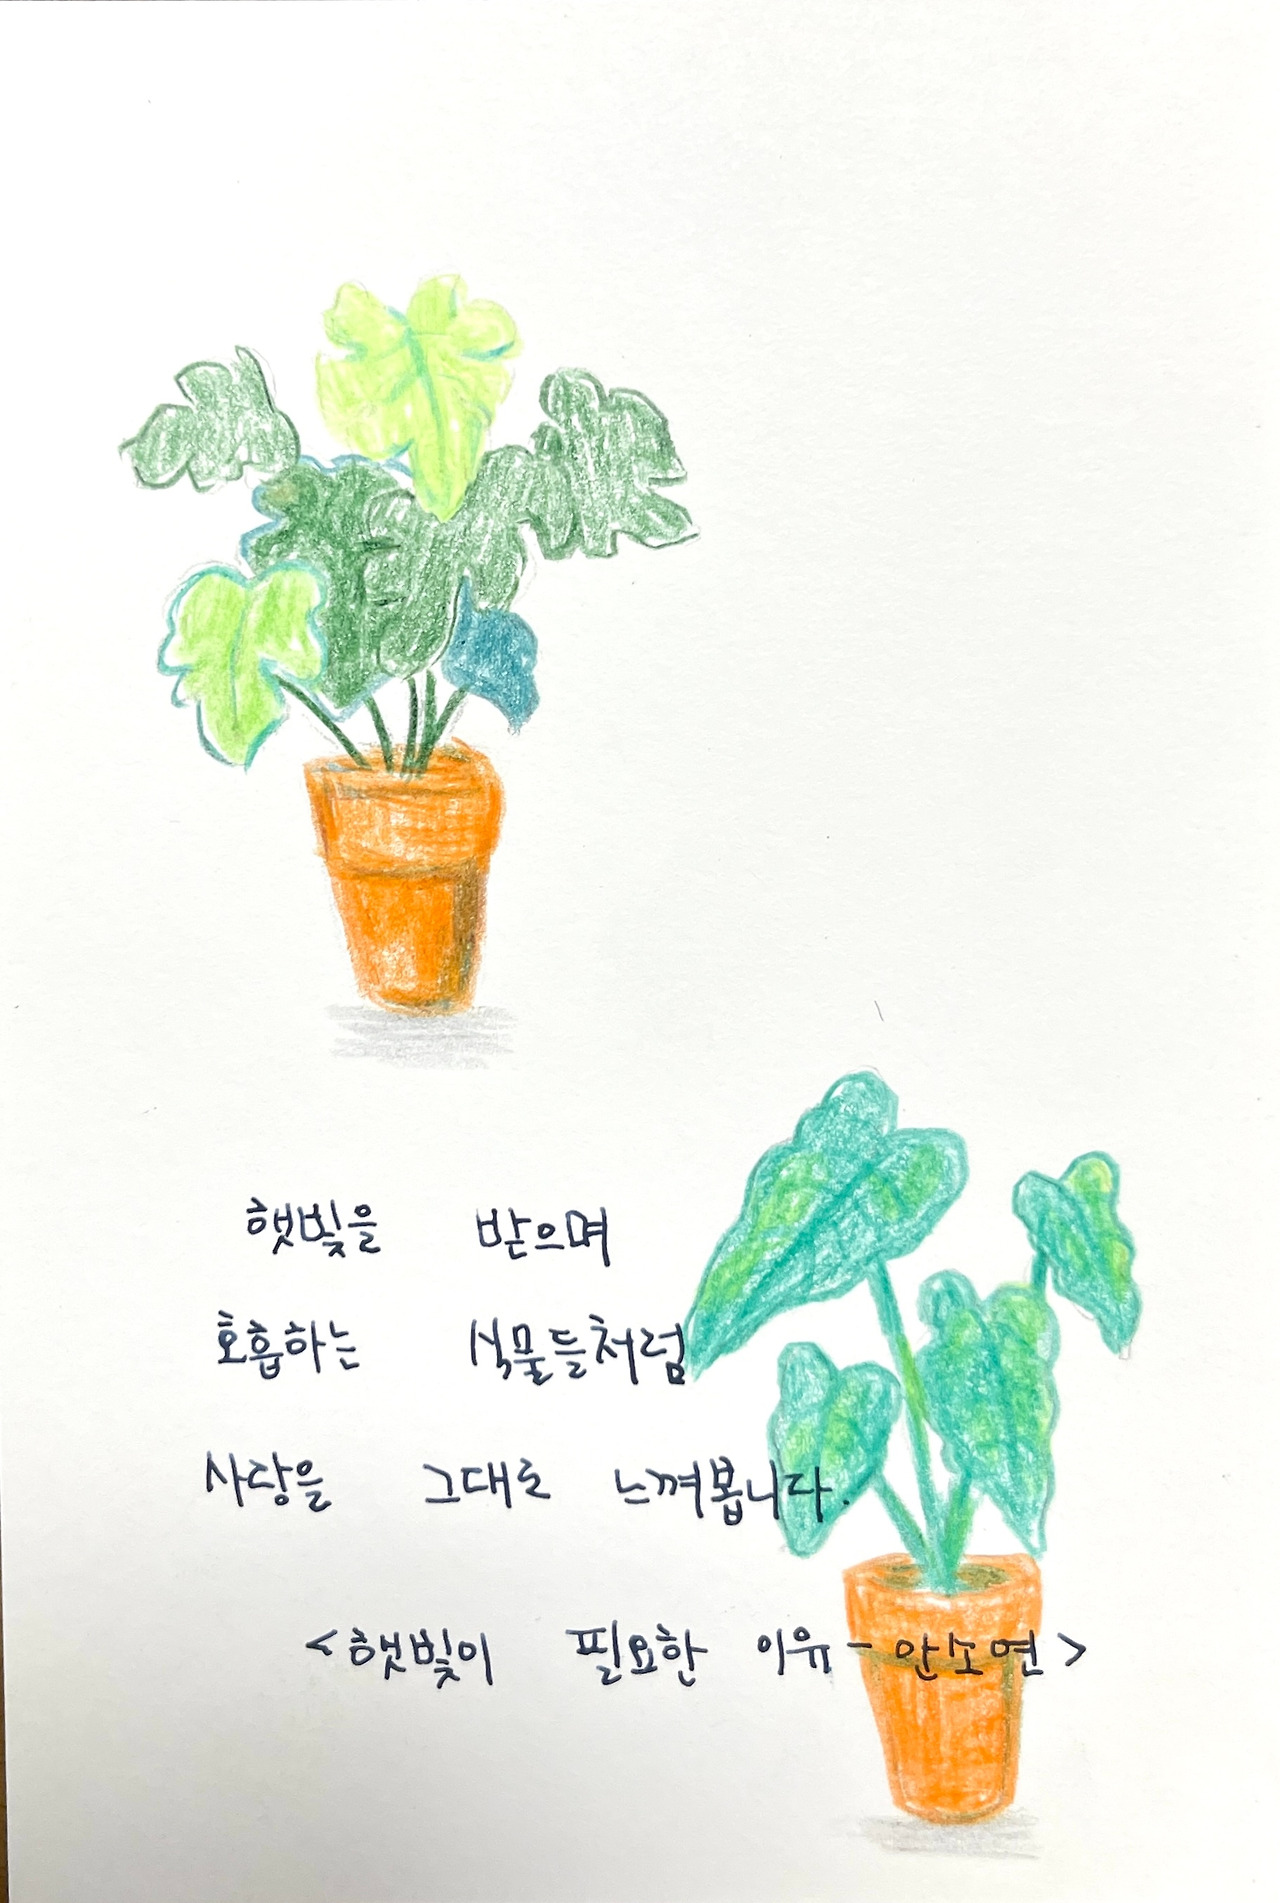 햇빛을 받으며
호흡하는 식물들처럼
사랑을 그대로 느껴봅니다.
<햇빛이 필요한 이유 - 안소연>